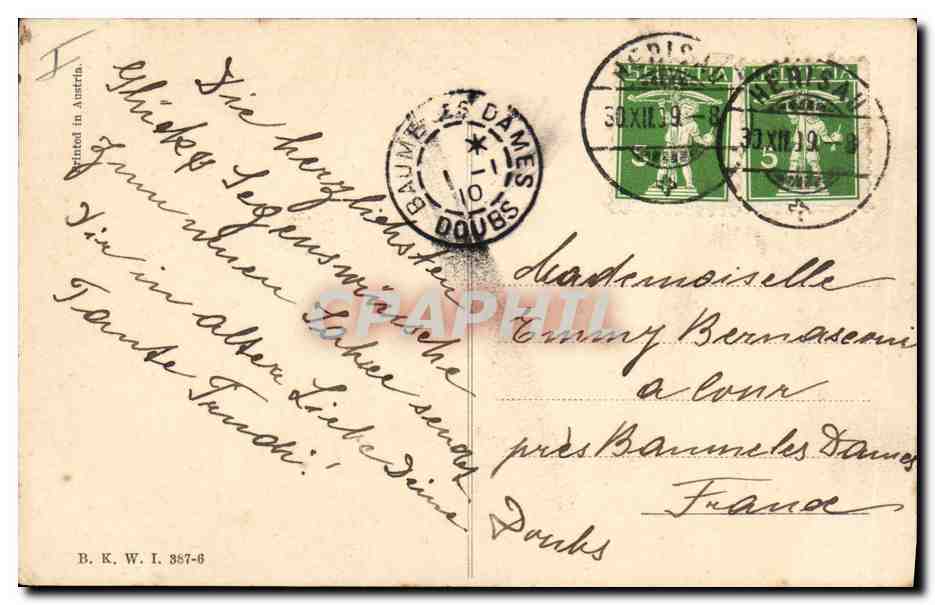 I
Printed in Austria.
Die herzlichsten
Glücks Segenswünsche
Zum neuen Jahre sendet
Dir in alter Liebe Deine
Tante Trudi!
B. K. W. I. 387-6
BAUME LES DAMES
1 - 1
10
DOUBS
HERISAU
30.XII.09.-8
5
HELVETIA
HERISAU
30.XII.09.-8
5
CPAPHIL
Mademoiselle
Emmy Bernasconi
a Cour
près Baume les Dames
France
Doubs